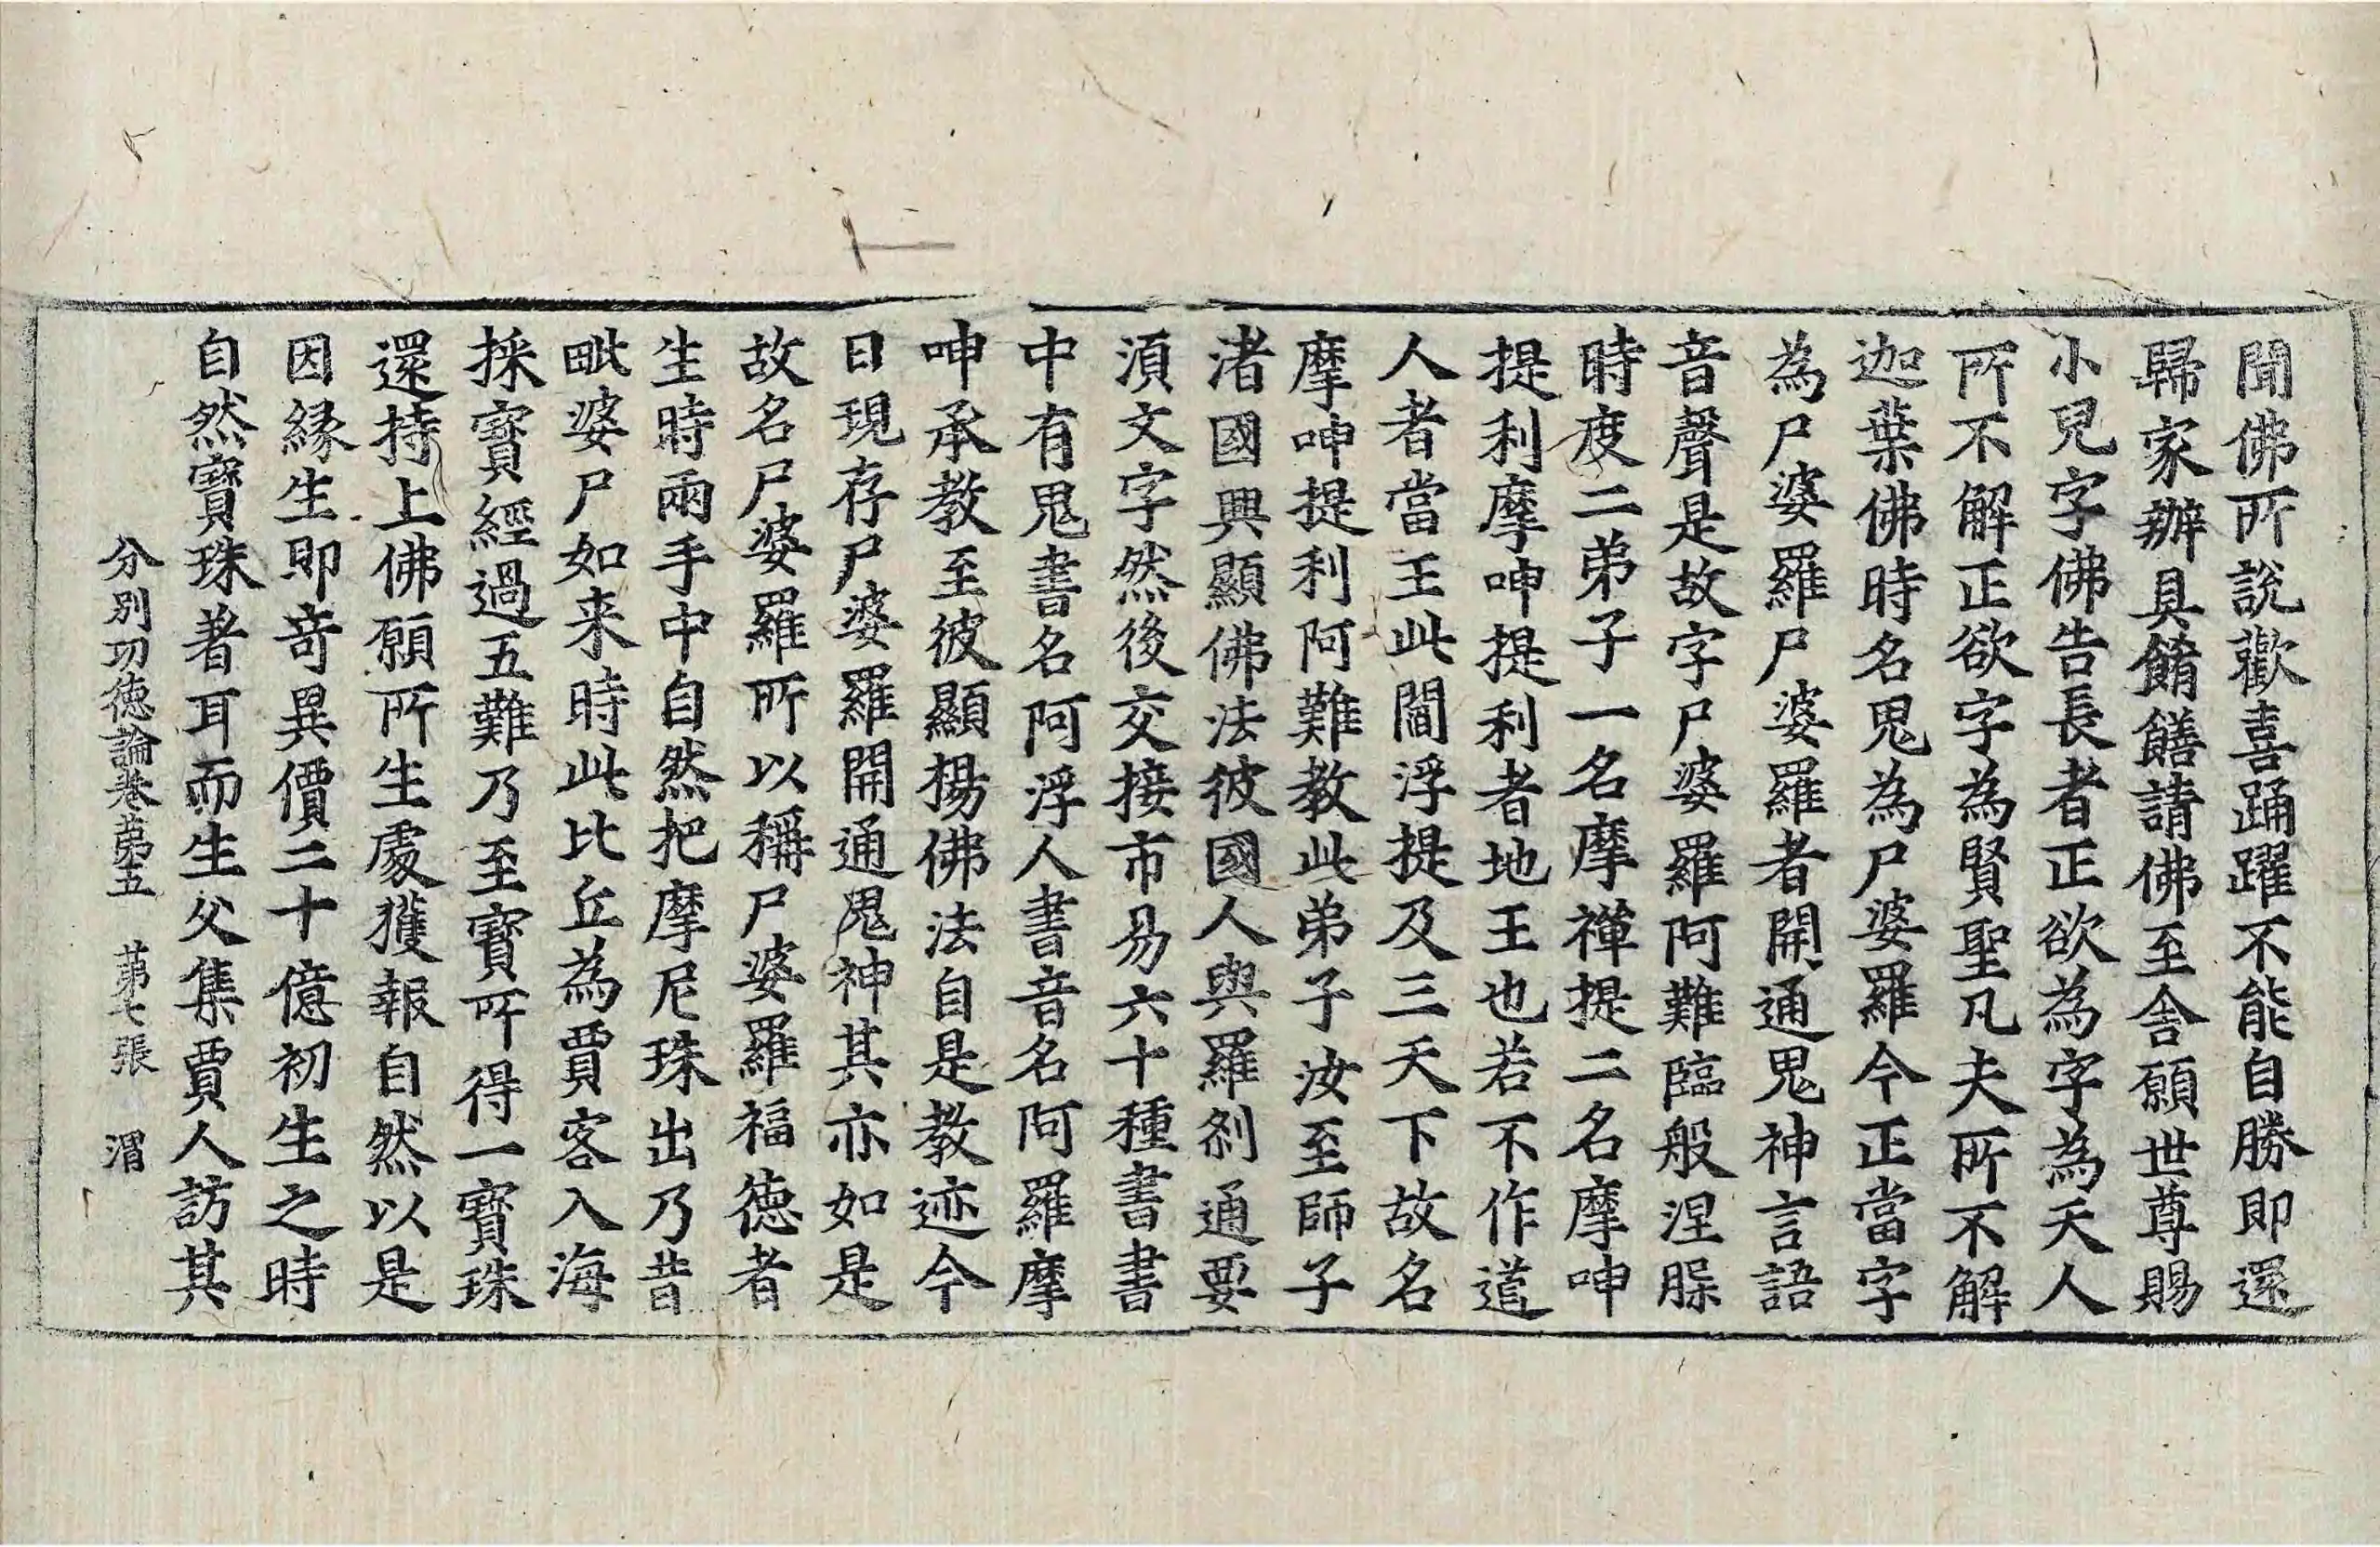 聞佛所說歡喜踊躍不能自勝即還
歸家辦具餚饍請佛至舍願世尊賜
小兒字佛告長者正欲為字為天人
所不解正欲字為賢聖凡夫所不解
迦葉佛時名鬼為尸婆羅今正當字
為尸婆羅尸婆羅者開通鬼神言語
音聲是故字尸婆羅阿難臨般涅脲
時度二弟子一名摩禪提二名摩呻
提利摩呻提利者地王也若不作道
人者當王此閻浮提及三天下故名
摩呻提利阿難教此弟子汝至師子
渚國興顯佛法彼國人與羅剎通要
須文字然後交接市易六十種書書
中有鬼書名阿浮人書音名阿羅摩
呻承教至彼顯揚佛法自是教迹今
日現存尸婆羅開通鬼神其亦如是
故名尸婆羅所以稱尸婆羅福德者
生時兩手中自然把摩尼珠出乃昔
毗婆尸如来時此比丘為賈客入海
採寶經過五難乃至寶所得一寶珠
還持上佛願所生處獲報自然以是
因緣生即奇異價二十億初生之時
自然寶珠著耳而生父集賈人訪其
分別功德論卷第五　第七張　渭